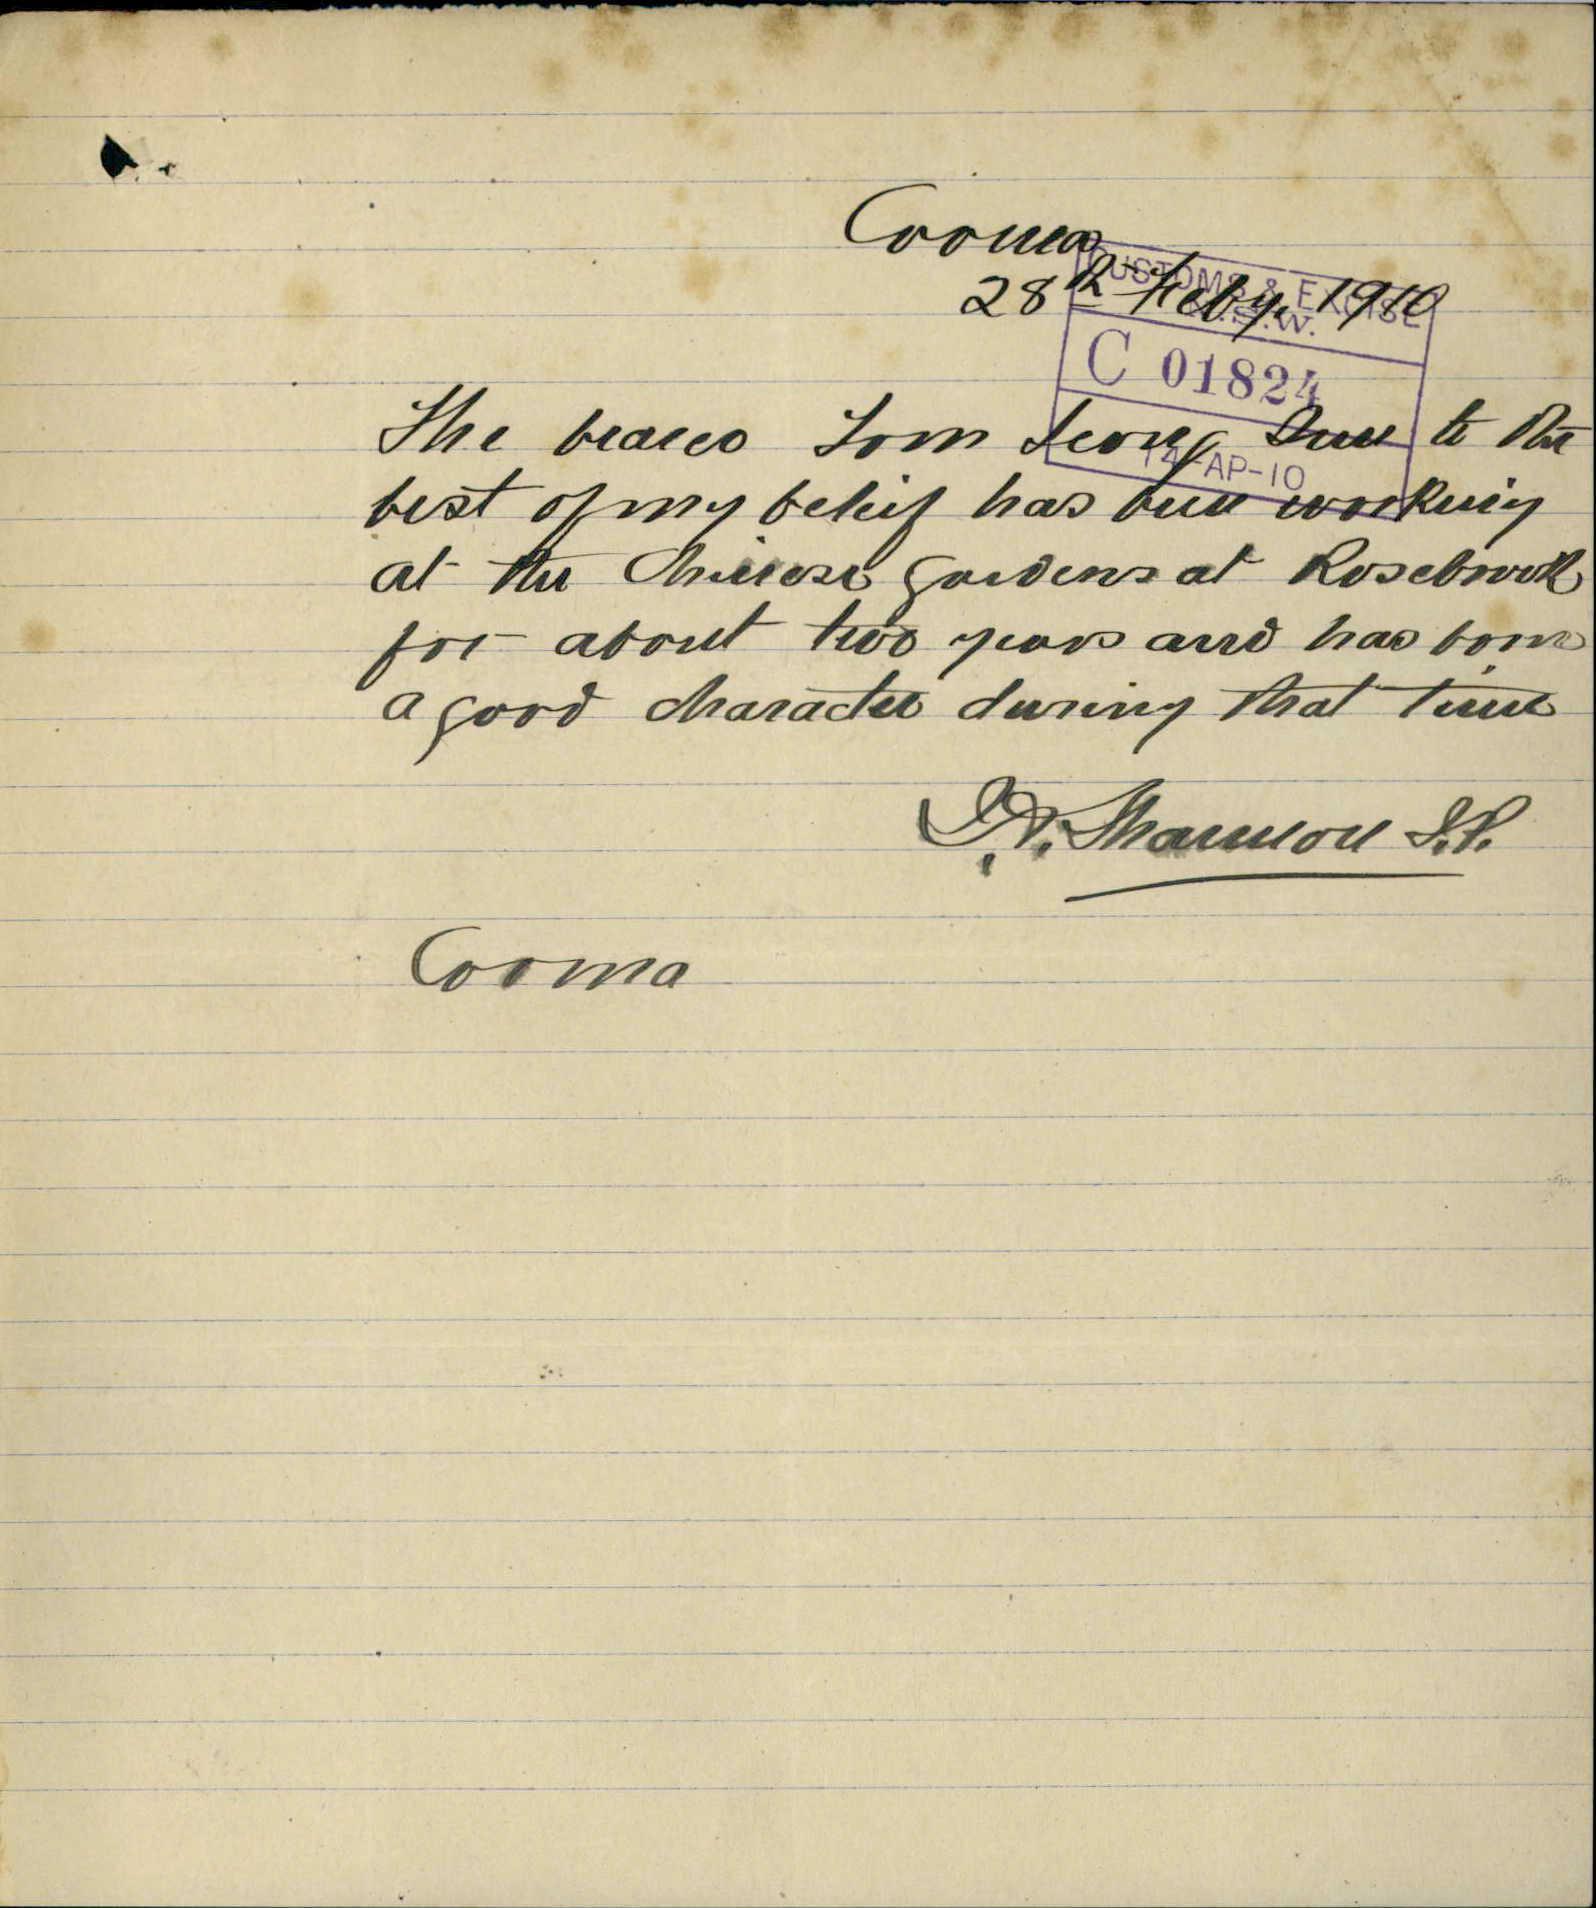 Cooma
28th Feby. 1910
CUSTOMS & EXCISE
N.S.W.
C 01824
14-AP-10
The bearer Tom Leong to the
best of my beleif has been working
at the Chinese gardens at Rosebrook
for about two years and has born
a good character during that time
Shannon J.P.
Cooma